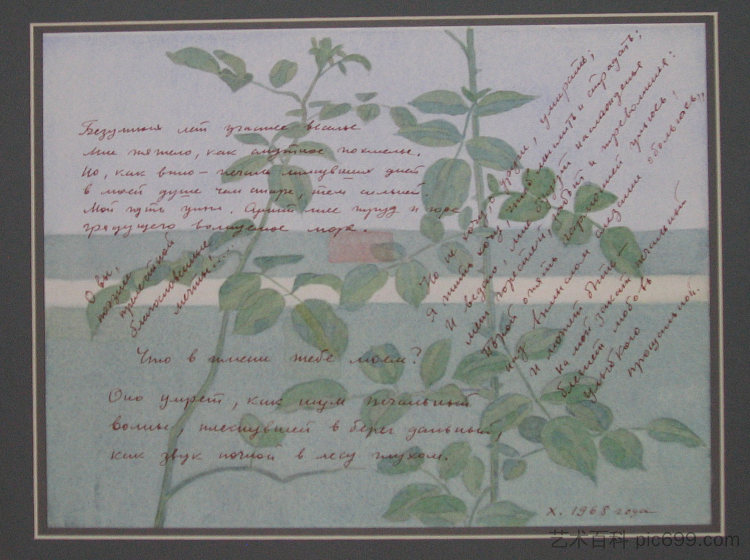 Безумных лет угасшее веселье
Мне тяжело, как смутное похмелье.
Но, как вино - печаль минувших дней
В моей душе чем старе, тем сильней
Мой путь уныл. Сулит мне труд и горе
грядущего волнуемое море.
О вы,
поэзии
прелестной
благословенные
мечты!...
Но не хочу, о други, умирать;
Я жить хочу, чтоб мыслить и страдать;
И ведаю, мне будут наслажденья
Меж горестей, забот и треволненья:
Порой опять гармонией упьюсь,
над вымыслом слезами обольюсь,
И может быть
на мой закат печальный
блеснет любовь
улыбкою
прощальной.
Что в имени тебе моем?
Оно умрет, как шум печальный
волны, плеснувшей в берег дальный,
как звук ночной в лесу глухом.
X. 1968 года
艺术百科 pic699.com